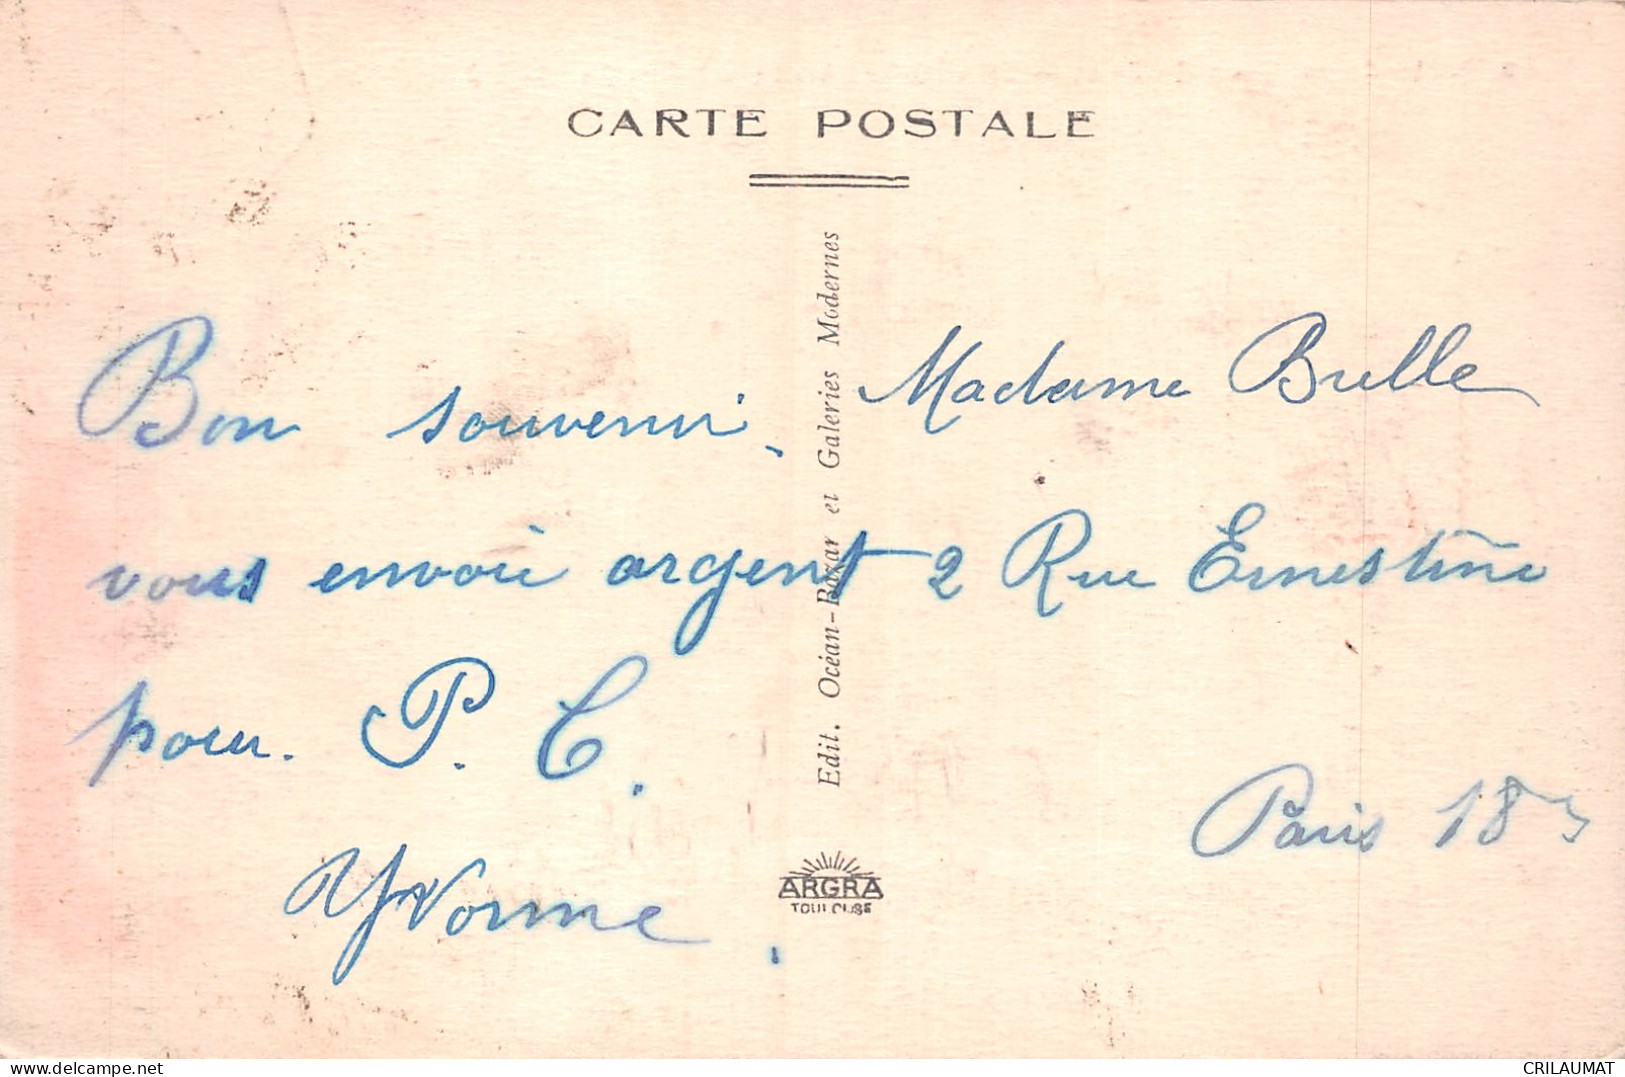 CARTE POSTALE
Bon souvenir.
vous envoie argent
pour. P. C.
Yvonne.
Edit. Océan-Bazar et Galeries Modernes
ARGRA
TOULOUSE
Madame Brelle
2 Rue Ernestine
Paris 18
delcampe.net
CRILAUMAT